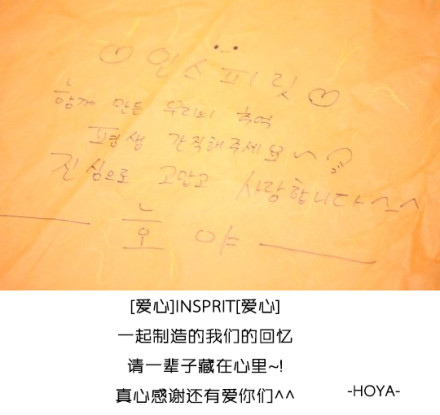 ♡인스피릿♡
함께 만든 우리의 추억
평생 간직해주세요~
진심으로 고맙고 사랑합니다^^
호야
[爱心]INSPRIT[爱心]
一起制造的我们的回忆
请一辈子藏在心里~!
真心感谢还有爱你们^^
-HOYA-